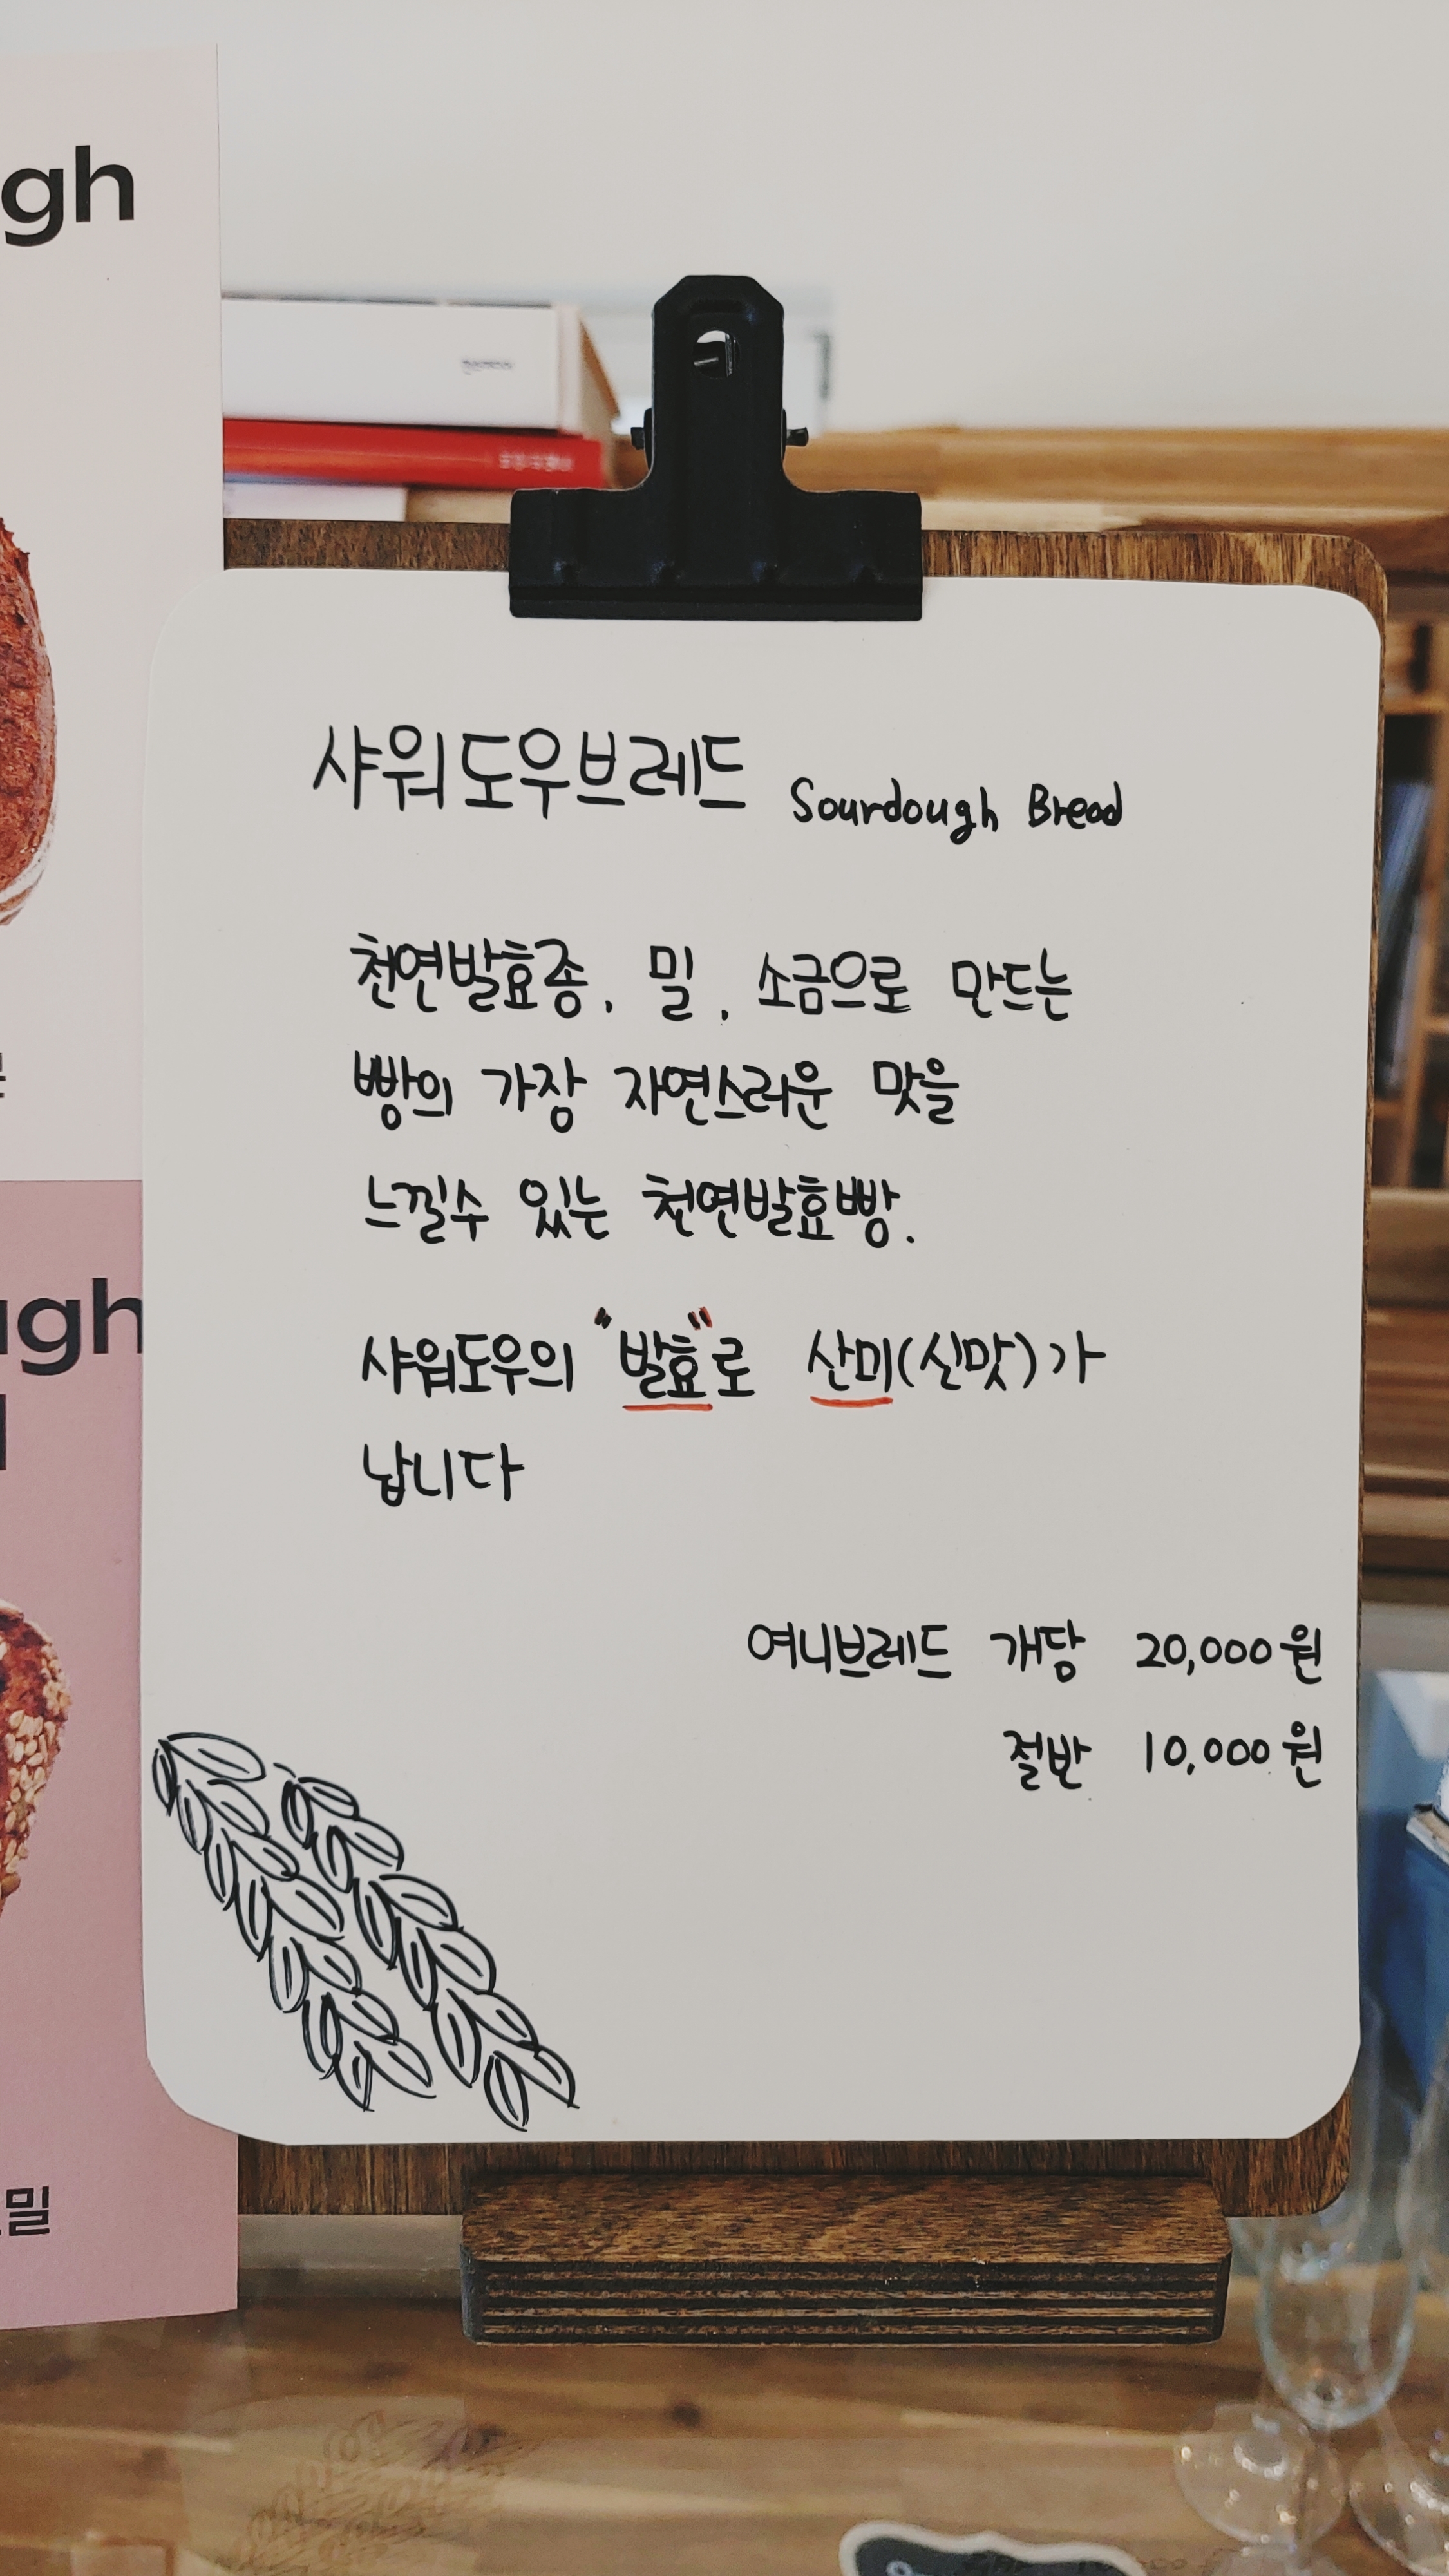 gh
샤워도우브레드 Sourdough Bread
천연발효종, 밀, 소금으로 만드는
빵의 가장 자연스러운 맛을
느낄수 있는 천연발효빵.
샤워도우의 "발효"로 산미(신맛)가
납니다
여니브레드 개당 20,000원
절반 10,000원
ugh
밀